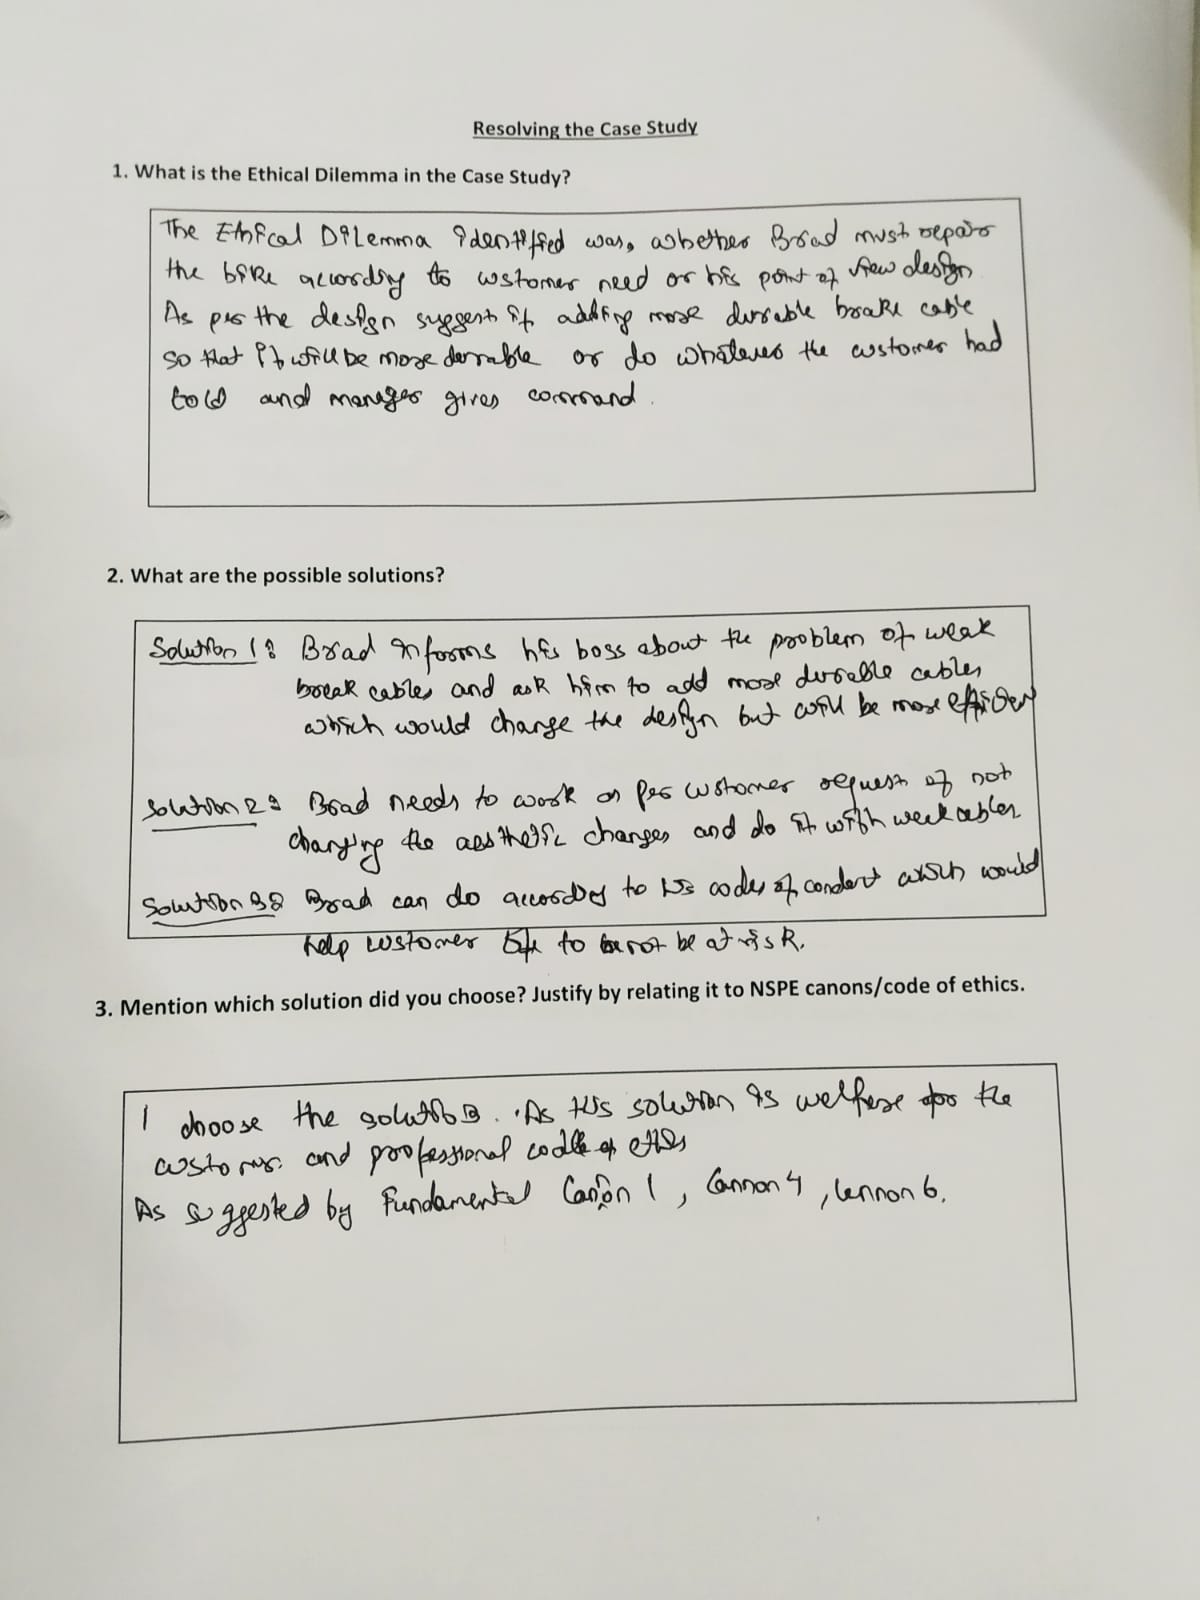 Resolving the Case Study
1. What is the Ethical Dilemma in the Case Study?
The Ethical Dilemma identified was, whether Brad must repair
the bike according to customer need or his point of view design
As per the design suggest if adding more durable brake cable
so that it will be more durable or do whatever the customer had
told and manager gives command.
2. What are the possible solutions?
Solution 1: Brad informs his boss about the problem of weak
break cables and ask him to add more durable cables
which would change the design but will be more efficient
Solution 2: Brad needs to work as per customer request of not
changing the aesthetic changes and do it with weak cables
Solution 3: Brad can do according to his codes of conduct which would
help customer life to not be at risk.
3. Mention which solution did you choose? Justify by relating it to NSPE canons/code of ethics.
I choose the solution 3. As this solution is welfare for the
customer and professional code of ethics
As suggested by Fundamental Canon 1, Cannon 4, Cannon 6.